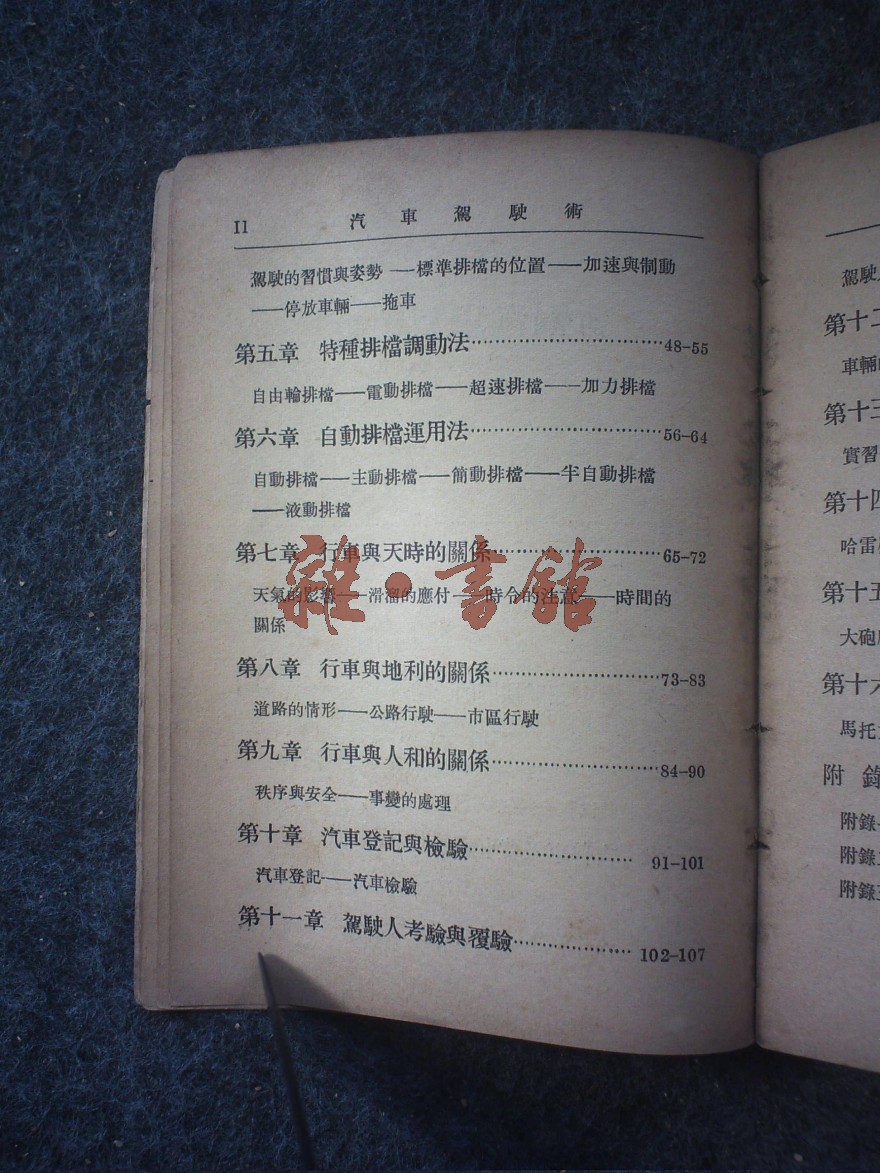 II 汽車駕駛術
駕駛的習慣與姿勢——標準排檔的位置——加速與制動
——停放車輛——拖車
第五章 特種排檔調動法……………………………48-55
自由輪排檔——電動排檔——超速排檔——加力排檔
第六章 自動排檔運用法……………………………56-64
自動排檔——主動排檔——簡動排檔——半自動排檔
——液動排檔
第七章 行車與天時的關係…………………………65-72
天氣的影響——滑溜的應付——時令的注意——時間的
關係
第八章 行車與地利的關係…………………………73-83
道路的情形——公路行駛——市區行駛
第九章 行車與人和的關係…………………………84-90
秩序與安全——事變的處理
第十章 汽車登記與檢驗…………………………91-101
汽車登記——汽車檢驗
第十一章 駕駛人考驗與覆驗…………………102-107
雜·書館
駕駛
第十二
車輛
第十三
實習
第十四
哈雷
第十五
大砲
第十六
馬托
附錄
附錄
附錄
附錄